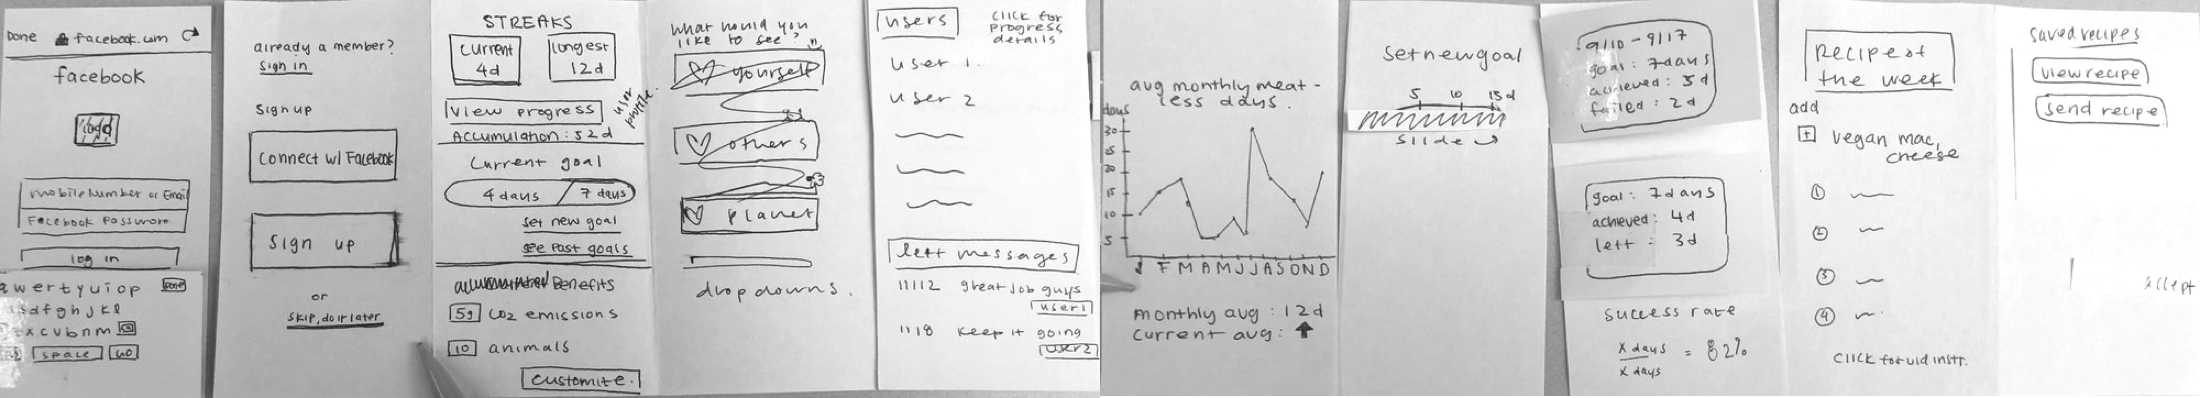 Done facebook.com
facebook
add
Mobile Number or Email
Facebook Password
log in
qwertyuiop
asdfghjkl
zxcvbnm
space GO
already a member?
sign in
Sign up
Connect w/ Facebook
Sign up
or
skip, do it later
STREAKS
current
4d
longest
12d
view progress
user profile.
Accumulation: 52 d
Current goal
4 days / 7 days
set new goal
see past goals
Benefits
5g CO2 emissions
10 animals
customize.
what would you
like to see?
yourself
others
planet
drop downs.
users
click for
progress
details
user 1.
user 2
left messages
11/12 great job guys
user1
11/18 keep it going
user2
avg monthly meat-
less days.
days
30
25
20
15
10
5
J F M A M J J A S O N D
monthly avg: 12d
current avg:
set new goal
5 10 15 d
slide
9/10 - 9/17
goal: 7 days
achieved: 5 d
failed: 2 d
goal: 7 days
achieved: 4d
left: 3d
success rate
x days
x days
= 82%
Recipe of
the week
add
+ vegan mac,
cheese
1
2
3
4
click for vid instr.
saved recipes
view recipe
send recipe
accept